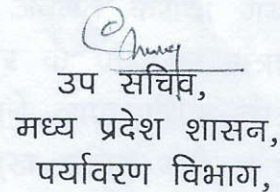 उप सचिव,
मध्य प्रदेश शासन,
पर्यावरण विभाग,